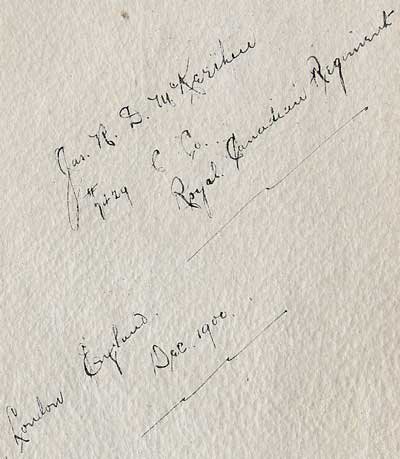 Jas. H. D. McKerihen
#7429 C Co.
Royal. Canadian Regiment
London England.
Dec. 1900.